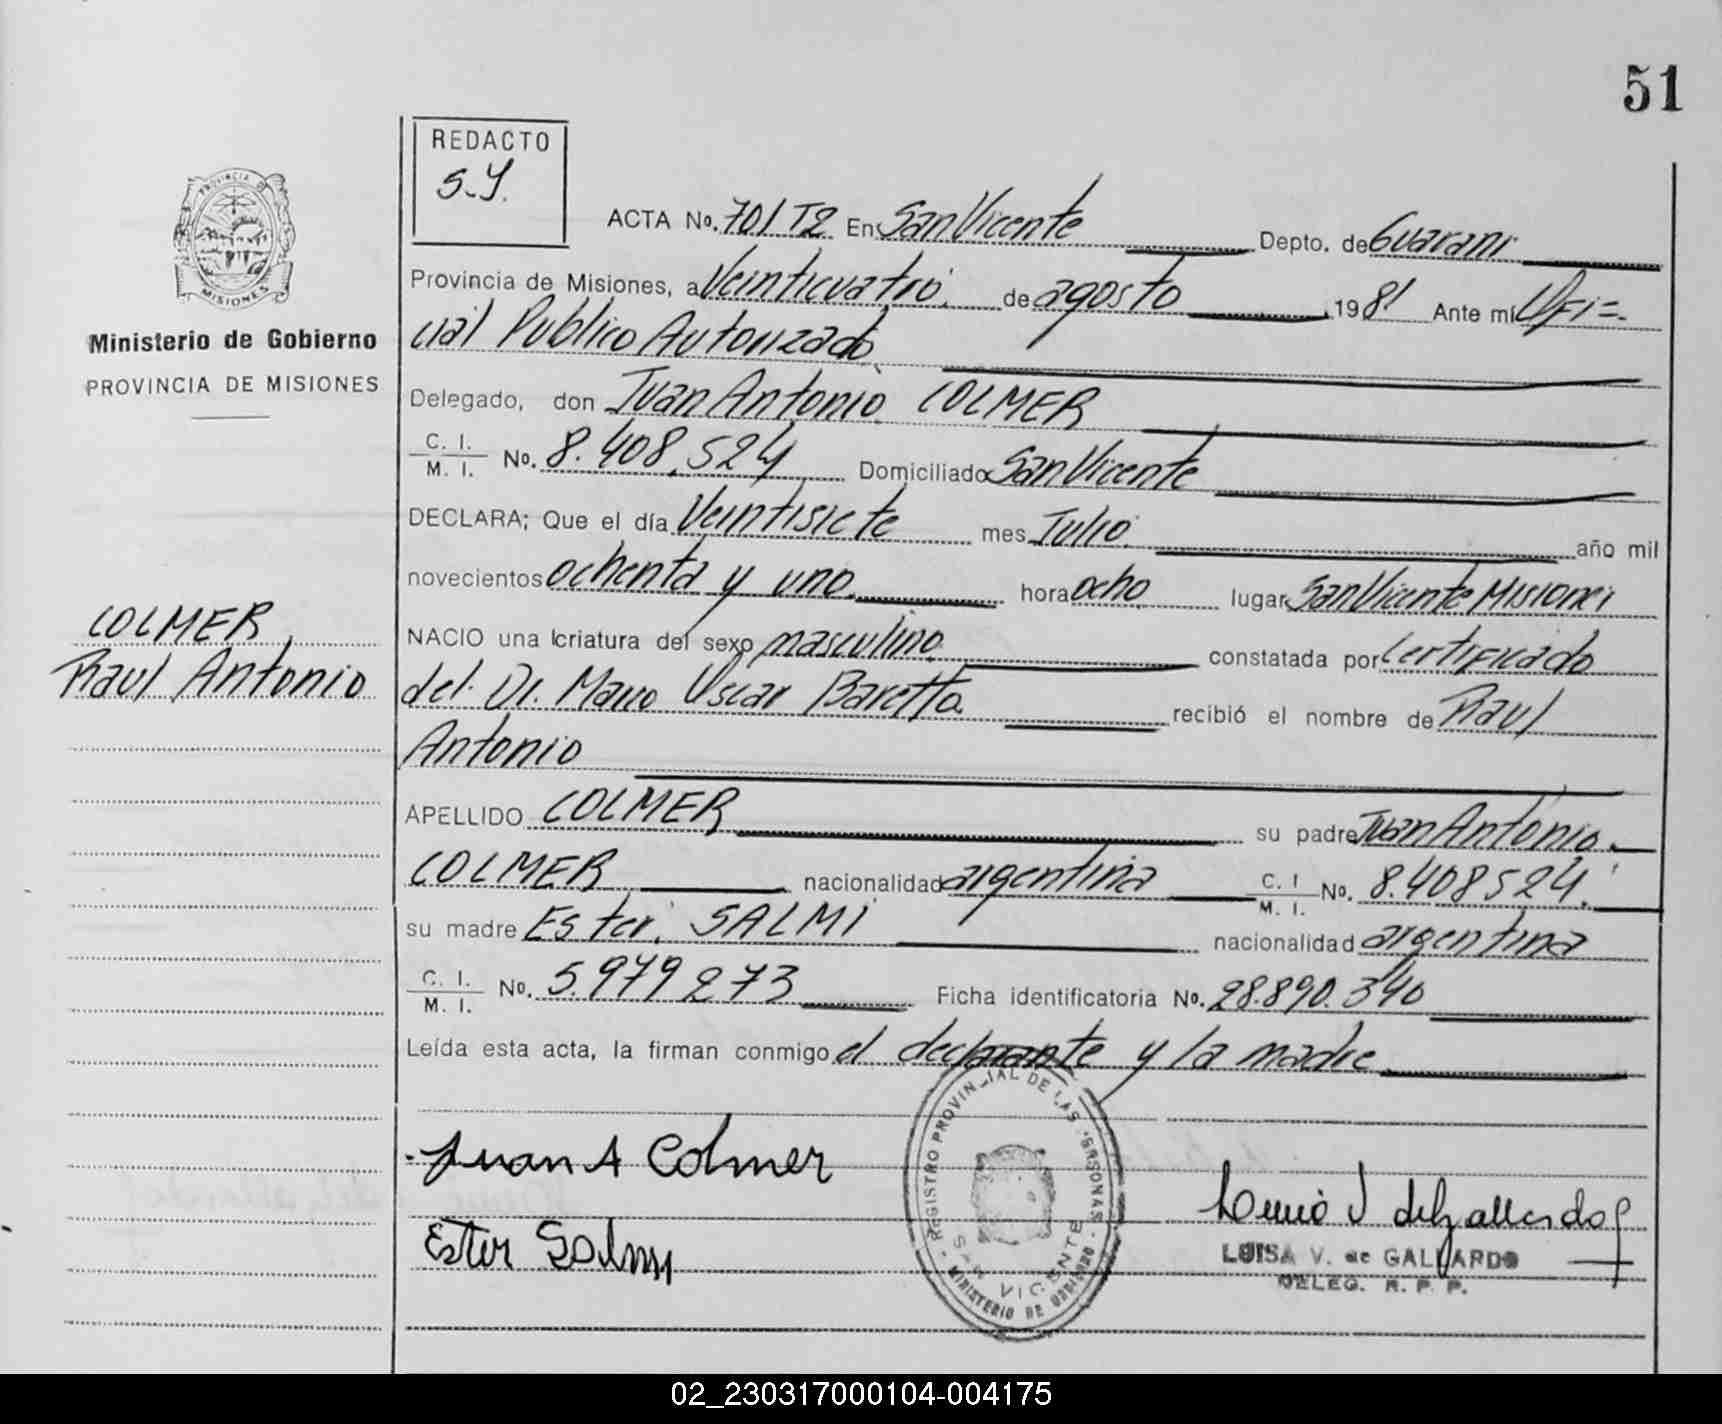 51
REDACTO
S.Y.
PROVINCIA DE
MISIONES
Ministerio de Gobierno
PROVINCIA DE MISIONES
COLMER,
Raul Antonio
ACTA No. 701 T2 En San Vicente Depto. de Guarani
Provincia de Misiones, a Veinticuatro, de agosto 1981 Ante mi Ofi=
cial Publico Autorizado
Delegado, don Juan Antonio COLMER
C. I.
M. I. No. 8.408.524 Domiciliado San Vicente
DECLARA; Que el día Veintisiete mes Julio año mil
novecientos ochenta y uno. hora ocho lugar San Vicente Misiones
NACIO una criatura del sexo masculino constatada por Certificado
del Dr. Mario Oscar Baretto. recibió el nombre de Raul
Antonio
APELLIDO COLMER su padre Juan Antonio
COLMER nacionalidad argentina C. I.
M. I. No. 8.408524.
su madre Ester, SALMI nacionalidad argentina
C. I.
M. I. No. 5.979273 Ficha identificatoria No. 28.890.340
Leída esta acta, la firman conmigo el declarante y la madre
Juan A Colmer
Ester Salmi
REGISTRO PROVINCIAL DE LAS PERSONAS
SAN VICENTE
MINISTERIO DE GOBIERNO
LUISA V. de GALLARDO
DELEG. R. P. P.
02_230317000104-004175